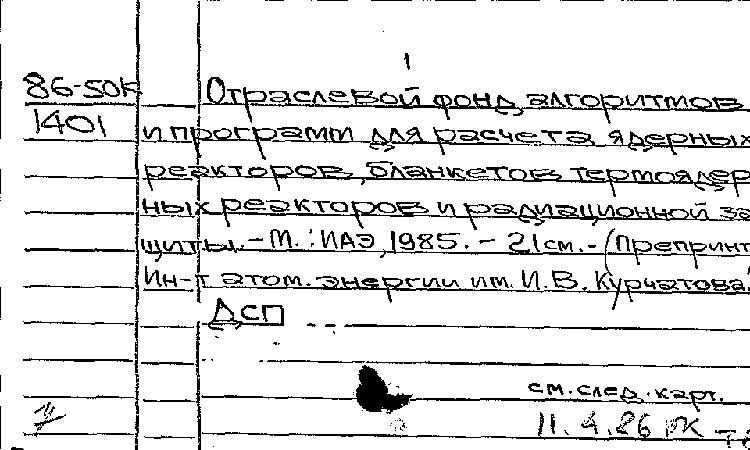 1
86-50К
1401
Отраслевой фонд алгоритмов
и программ для расчета ядерных
реакторов, бланкетов термоядер
ных реакторов и радиационной за
щиты. - М.: ИАЭ, 1985. - 21 см. - (Препринт
Ин-т атом. энергии им. И.В. Курчатова.
ДСП
см. след. карт.
11.4.86